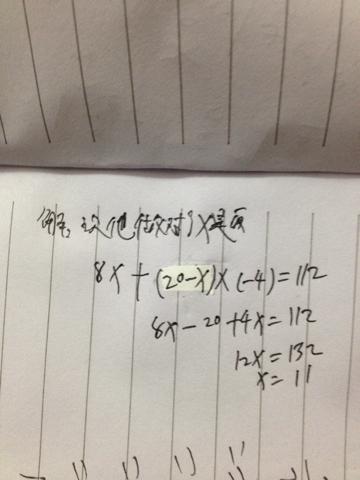 解：设他做对了X道题
8x+(20-x)×(-4)=112
8x-20+4x=112
12x=132
x=11